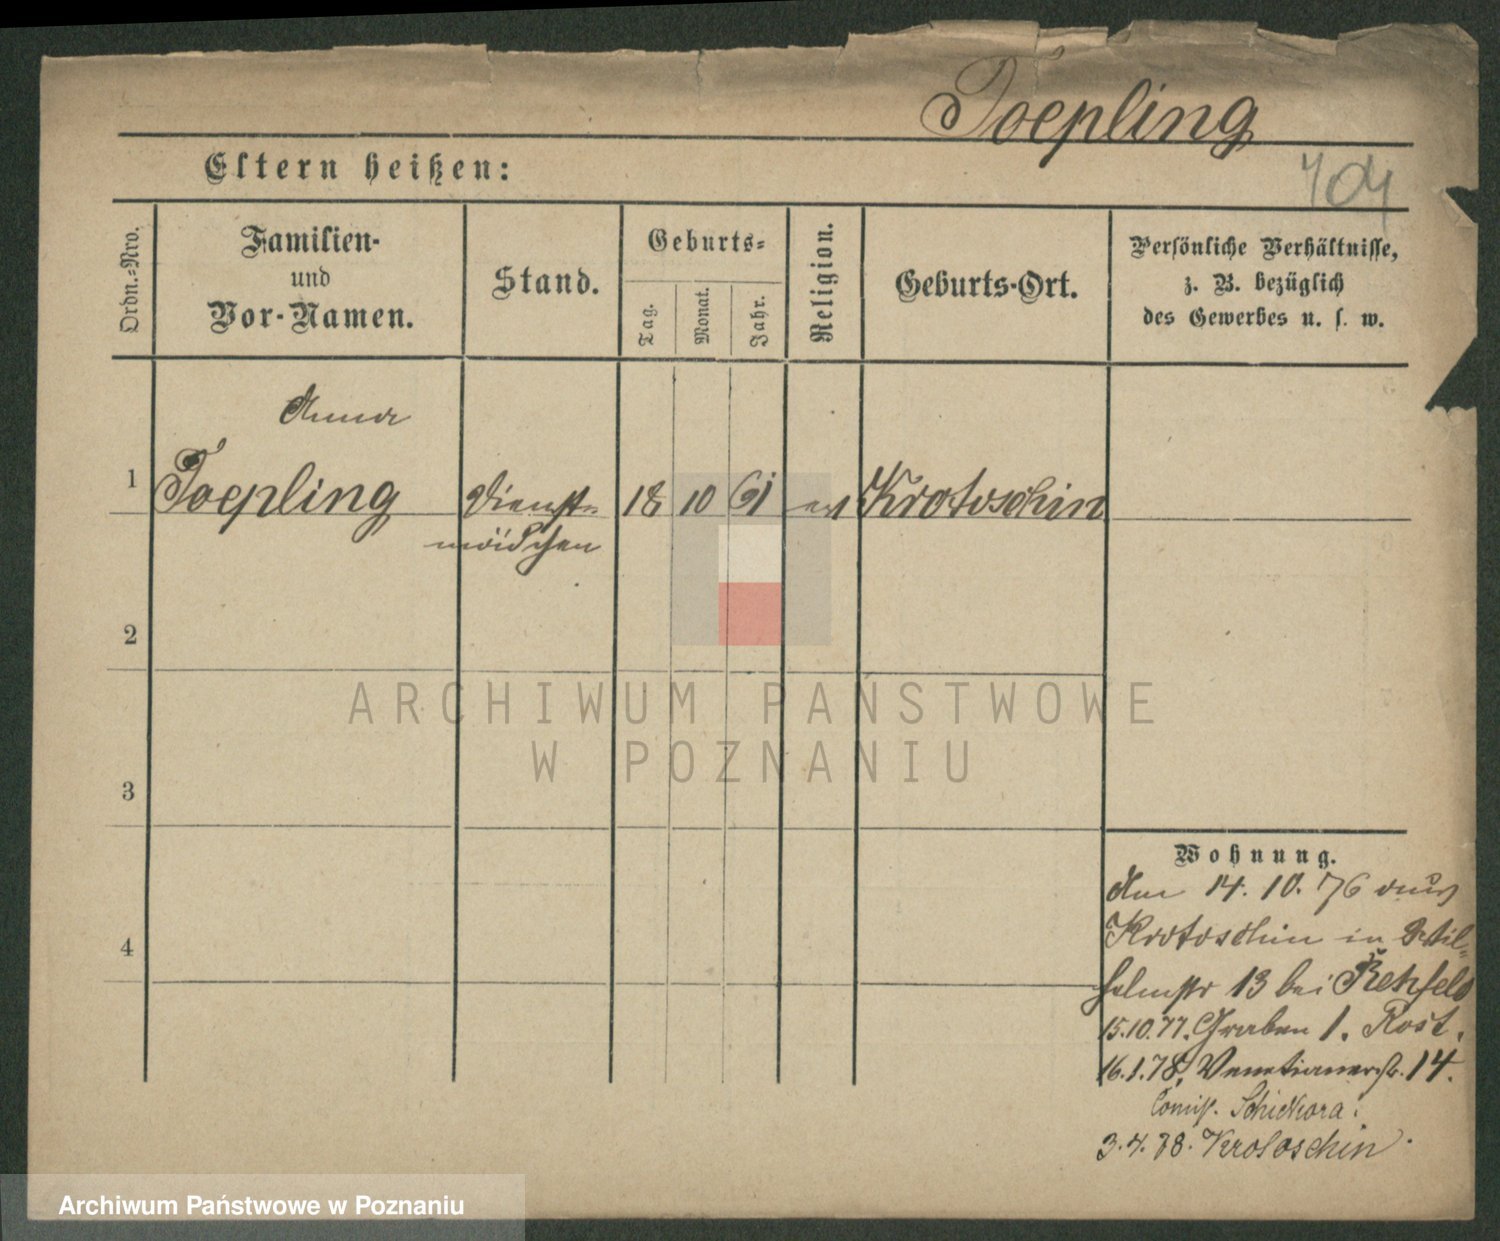 Toepling
Eltern heißen:
704
Ordn.-Nro.
Familien-
und
Vor-Namen.
Stand.
Geburts-
Tag.
Monat.
Jahr.
Religion.
Geburts-Ort.
Persönliche Verhältnisse,
z. B. bezüglich
des Gewerbes u. s. w.
Anna
1 Toepling Dienst- 18 10 61 ev Krotoschin
mädchen
2
3
4
ARCHIWUM PAŃSTWOWE
W POZNANIU
Wohnung.
Am 14. 10. 76 aus
Krotoschin in Wil-
helmstr 13 bei Rehfeld
15.10.77. Graben 1. Rost.
16.1.78. Venetianerstr. 14.
Schickora.
3.4.78. Krotoschin.
Archiwum Państwowe w Poznaniu